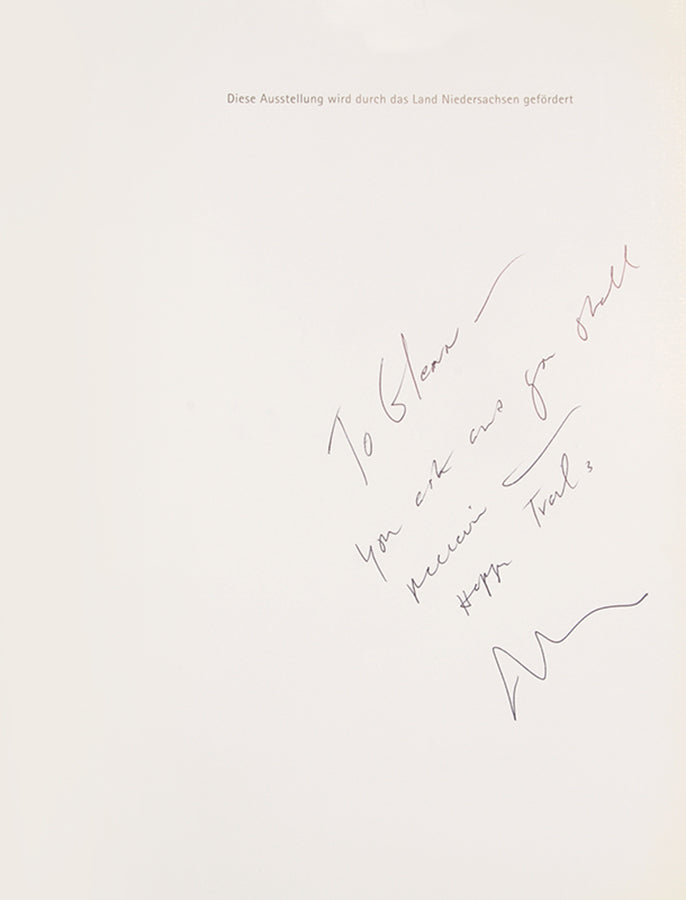 Diese Ausstellung wird durch das Land Niedersachsen gefördert
To Glenn —
you ask and you shall
receive
Happy Trails